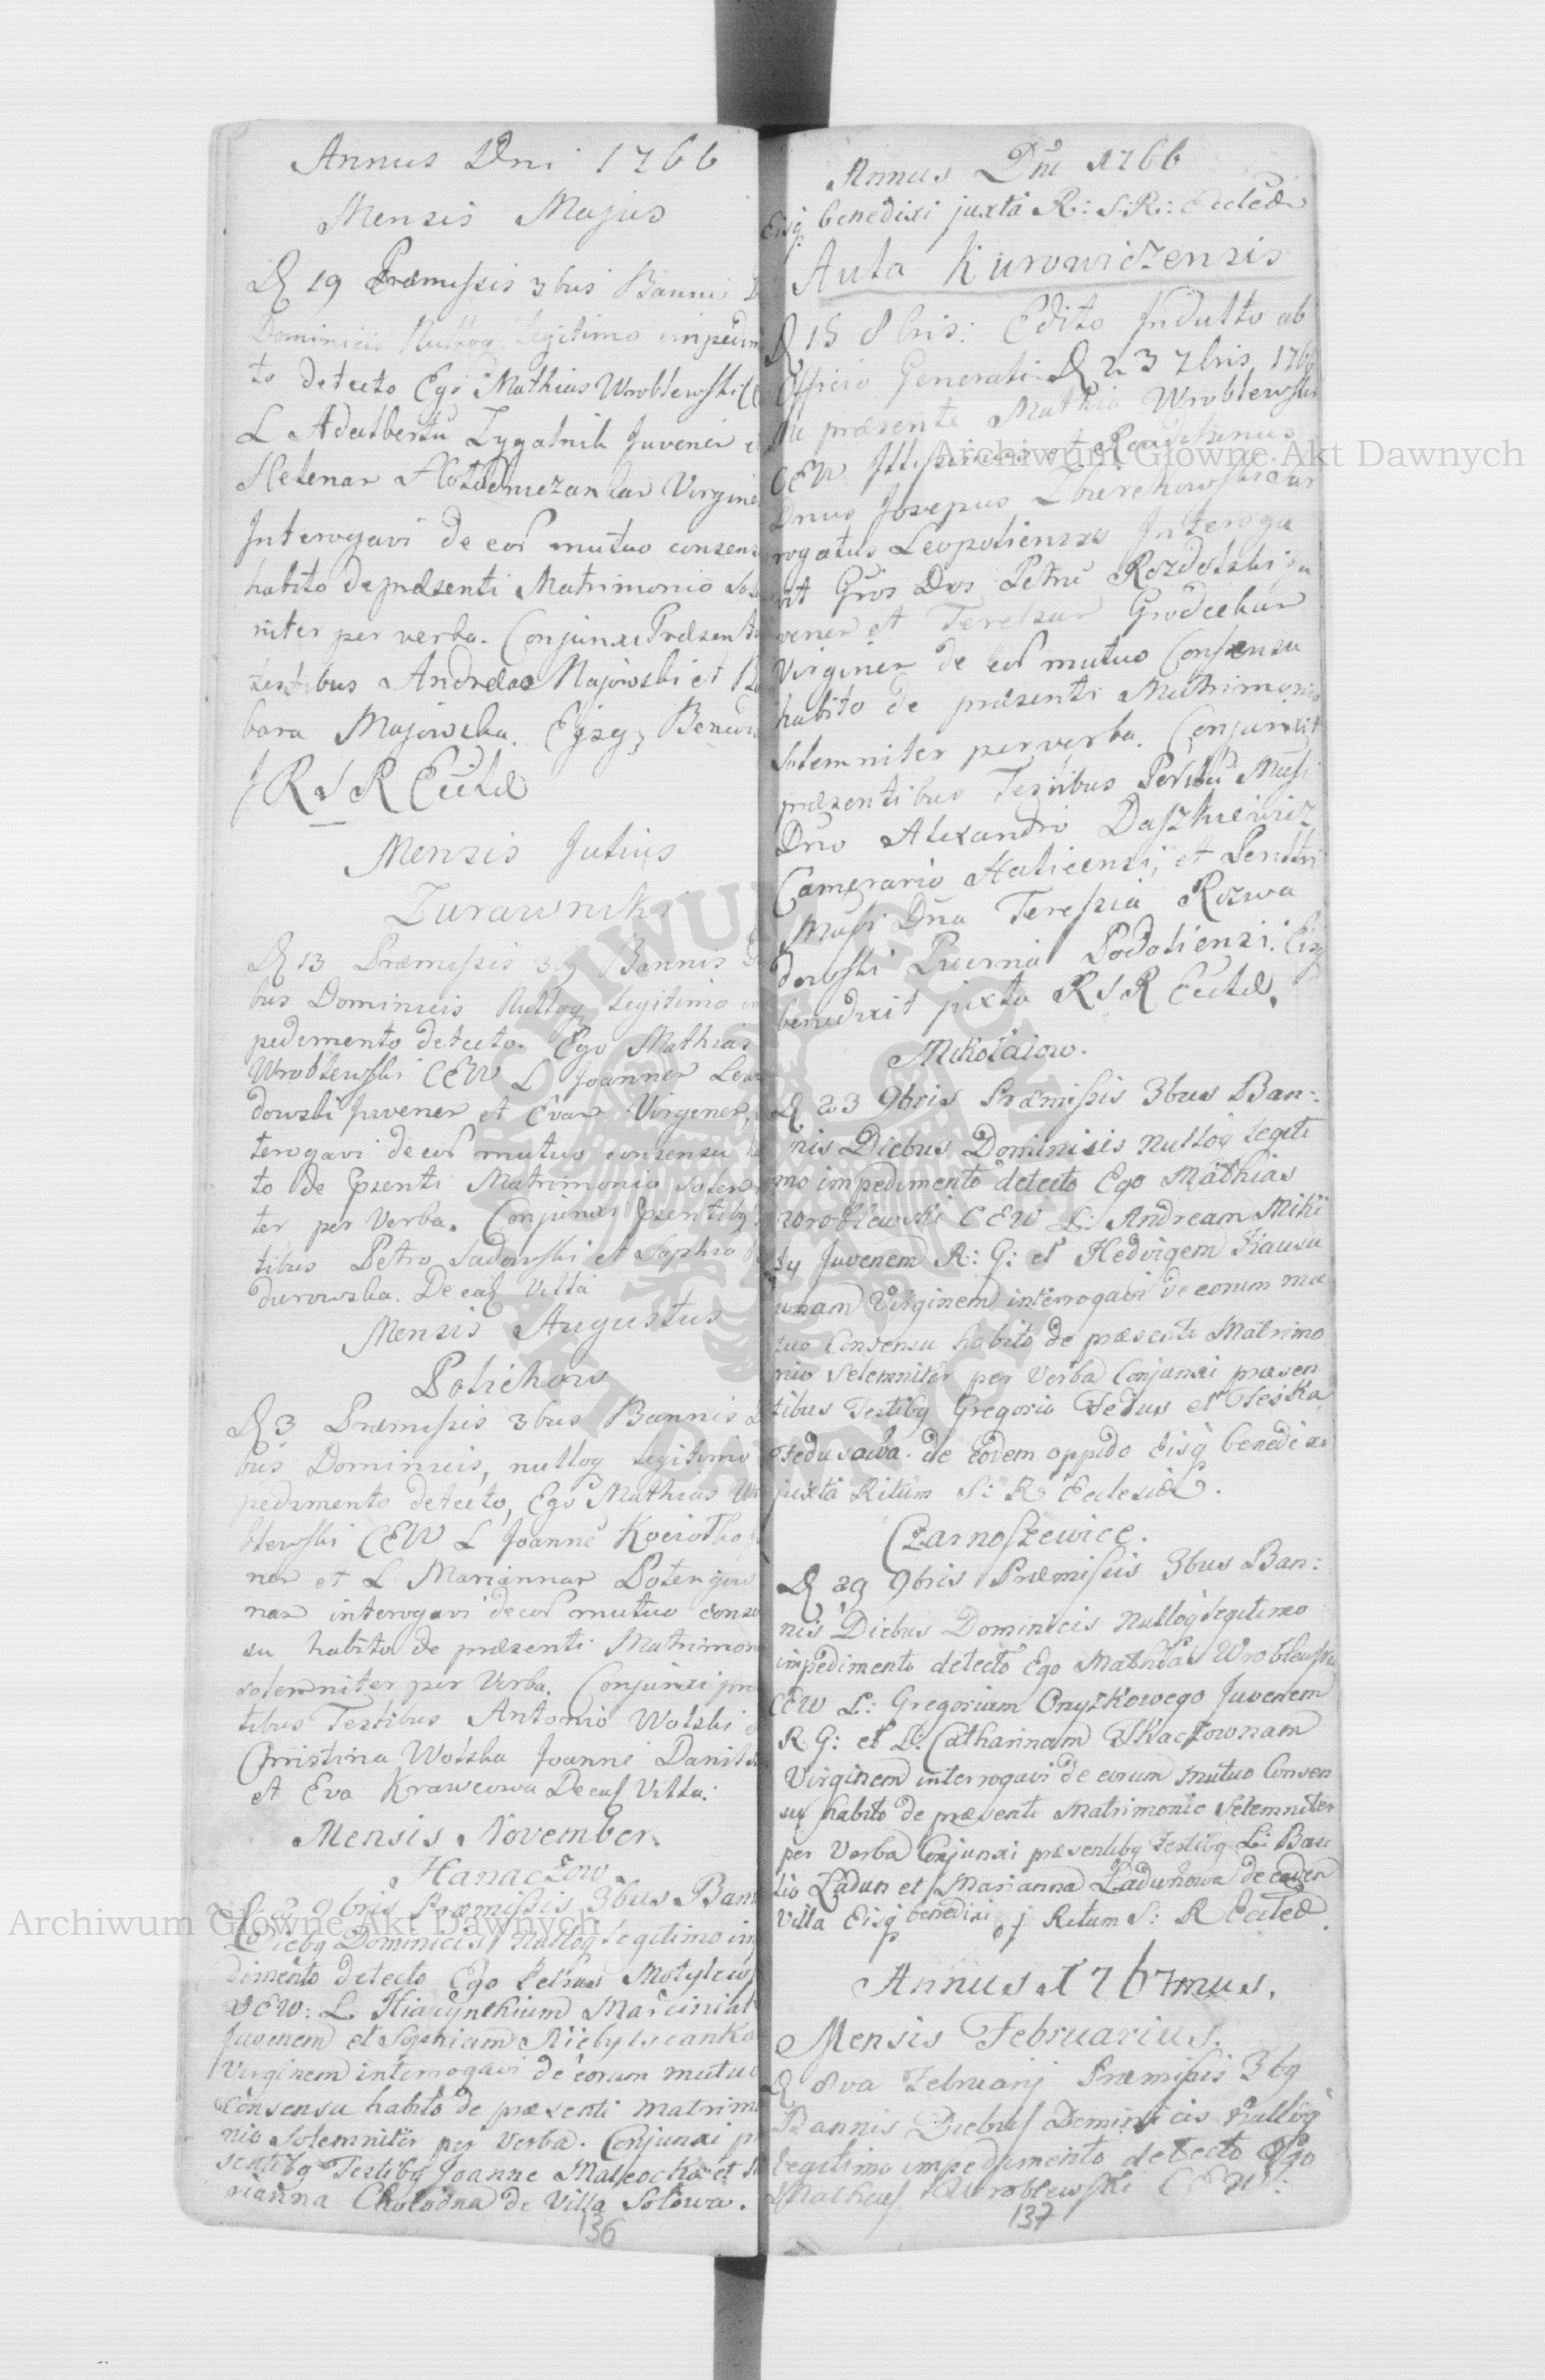 Annus Dni 1766
Mensis Majus
D 19 Præmissis 3bus Bannis
Dominicis Nulloq legitimo impedim
to detecto Ego Mathias Wroblewski
L Adalbertu Zygalnik Juvener
Helenar Virgine
Interogavi de eor mutuo consens
habito de præsenti Matrimonio So
niter per verba. Conjunxi Præsenti
testibus Andreas Majowski et Ba
bara Majowska. Ejsq Benedi
J R S R Eccle
Mensis Julius
Zurawniki
D 13 Præmissis 3bq Bannis
bus Dominicis Nulloq legitimo im
pedimento detecto. Ego Mathias
Wroblewski CEW L Joanner Lewa
dowski Juvener et Evar Virginer,
terogavi de eor mutuo consensu
to de Psenti Matrimonio solen
ter per Verba. Conjunxi Psentibq
tibus Petro Sadowski et Sophia
durowska. De ead Villa
Mensis Augustus
Polichow
D 3 Præmissis 3bus Bannis
bus Dominicis, nulloq legitimo
pedimento detecto, Ego Mathias W
blewski CEW L Joanne
ner et L Mariannar
nar interogavi de eor mutuo conse
su habito de præsenti Matrimon
solemniter per Verba. Conjunxi pr
tibus Testibus Antonio Wolski
Christina Wolska Joanne Danil
et Eva Krawcowa De ead Villa:
Mensis November.
Hanaczow
D 2 9bris Præmissis 3bus Ban
Diebq Dominicis Nulloq legitimo im
dimento detecto Ego Petrus Motylews
VCEW: L Hiacynthium Marciniak
Juvenem et Sophiam
Virginem interrogavi de eorum mutuo
consensu habito de præsenti matrimo
nio Solemniter per Verba. Conjunxi pr
sentibq Testibq Joanne et
rianna Cholodna de Villa Solowa.
136
Annus Dni 1766
Eisq benedixi juxta R: S: R: Eccleæ
Aula Kurowiczensis
D 15 8bris: Edito Indulto ab
Officio Generali D 23 7bris 1766
Me præsente Mathia Wroblewski
CEW
Dnus Josepus
rogatus Leopoliensis Interoga
vit Gros Dnos Petru Rozdolski Ju
vener et Teressar Grodeckar
Virginer de eor mutuo Consensu
habito de præsenti Matrimonio
Solemniter per verba. Conjunxit
præsentibus Testibus
Dno Alexandro Daszkiewicz
Camerario Haliciensi, et
Dna Teressia Rozwa
dowski Podoliensi. Eisq
benedixit juxta R S R Eccle.
Mikolaiow.
D 23 9bris Præmissis 3bus Ban:
nis Diebus Dominicis Nulloq legiti
mo impedimento detecto Ego Mathias
Wroblewski CEW L: Andream Miki
ty Juvenem R: G: et Hedvigem
Virginem interrogavi de eorum mu
tuo Consensu habito de præsenti Matrimo
nio Solemniter per Verba Conjunxi præsen
tibus Testibq Gregorio Fedus et
Fedusowa. de eodem oppido Eisq benedixi
juxta Ritum S: R Ecclesiæ.
Czarnoszewice.
D 29 9bris Præmissis 3bus Ban:
nis Diebus Dominicis Nulloq legitimo
impedimento detecto Ego Mathias Wroblewski
CEW L: Gregorium Onyszkowego Juvenem
R. G: et L: Catharinam Tkaczownam
Virginem interrogavi de eorum mutuo Consen
su habito de præsenti Matrimonio Solemniter
per Verba Conjunxi præsentibq Testibq L: Basi
lio Ladun et Marianna Ladunowa de eadem
Villa Eisq benedixi j Ritum S: R Eccleæ.
Annus 1767mus.
Mensis Februarius.
D 8va Februarij Præmissis 3bq
Bannis Diebus Dominicis Nulloq
legitimo impedimento detecto Ego
Mathias Wroblewski CEW:
137
Archiwum Główne Akt Dawnych
Archiwum Główne Akt Dawnych
ARCHIWUM GŁÓWNE AKT DAWNYCH